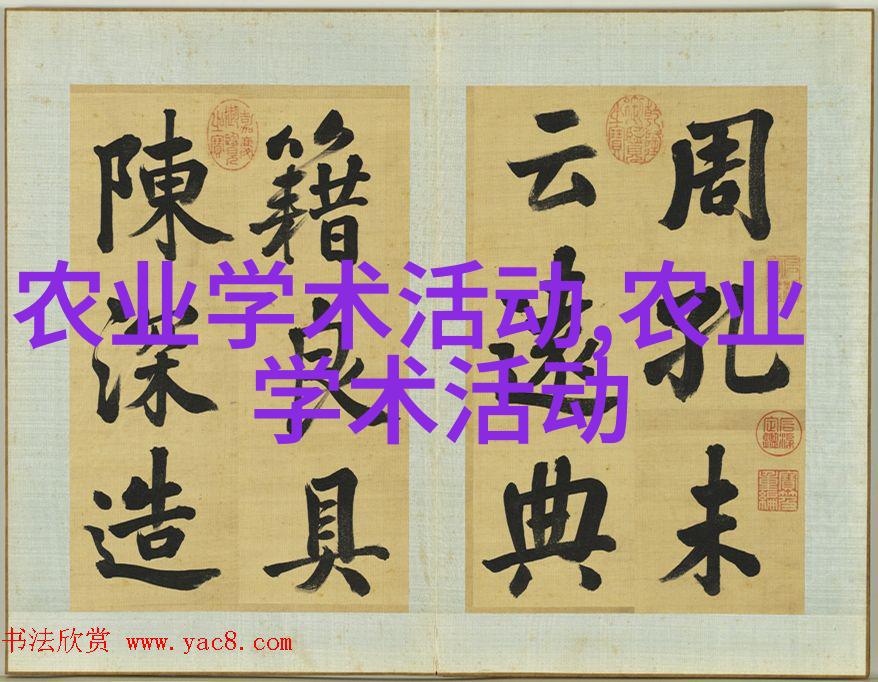 周孔未
云邈典
籍良具
陳深造
农业学术活动,农业
学术活动
书法欣赏 www.yac8.com